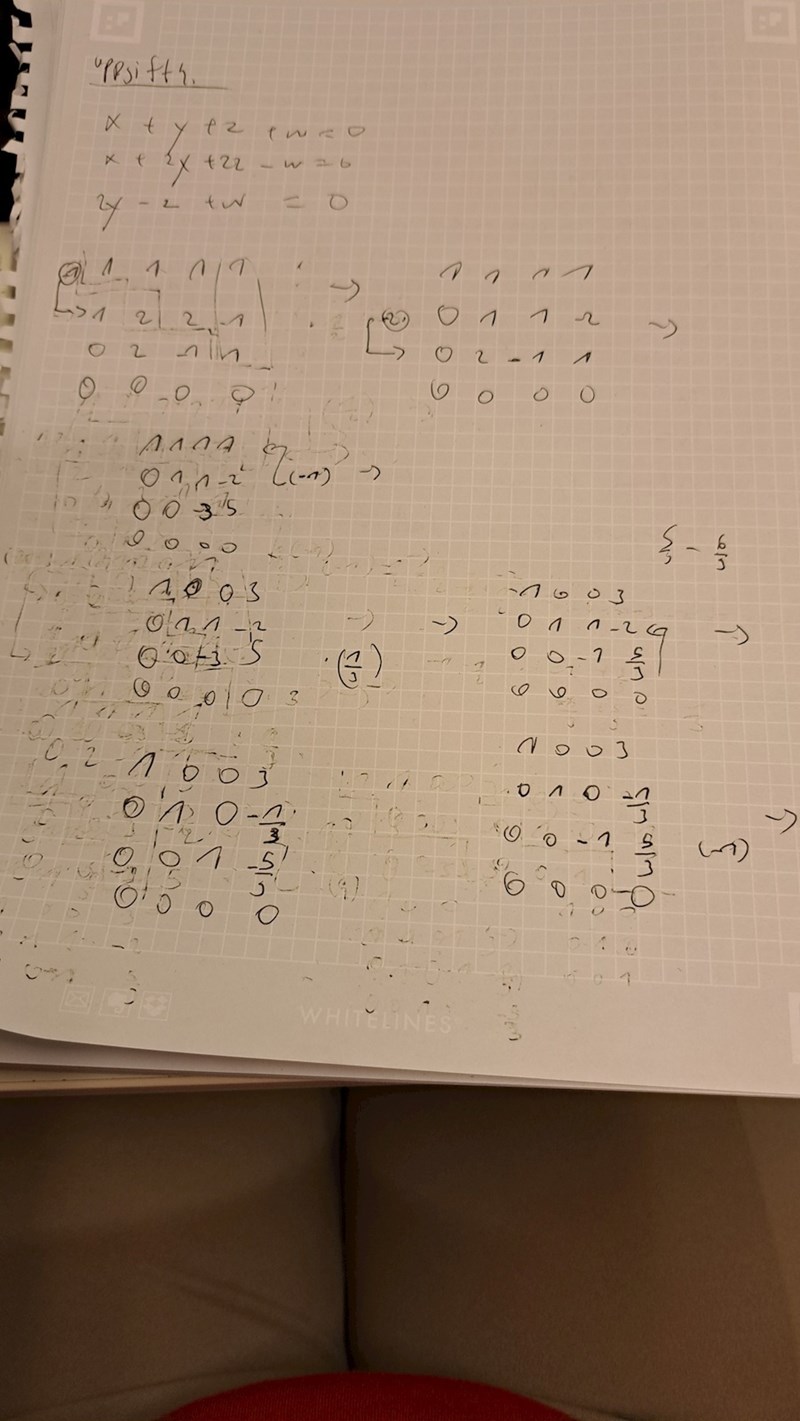 Uppgift 4.
x + y + z + w = 0
x + 2y + 2z - w = 0
2y - z + w = 0
1 1 1 1
1 2 2 -1
0 2 -1 1
0 0 0 0
→
1 1 1 1
0 1 1 -2
0 2 -1 1
0 0 0 0
→
1 1 1 1
0 1 1 -2 (-1) →
0 0 -3 5
0 0 0 0
5/3 - 6/3
1 0 0 3
0 1 1 -2
0 0 -3 5 · (1/3)
0 0 0 0
→
1 0 0 3
0 1 1 -2 →
0 0 -1 5/3
0 0 0 0
1 0 0 3
0 1 0 -1/3 →
0 0 -1 5/3 (-1)
0 0 0 0
1 0 0 3
0 1 0 -1/3
0 0 1 -5/3
0 0 0 0
WHITELINES